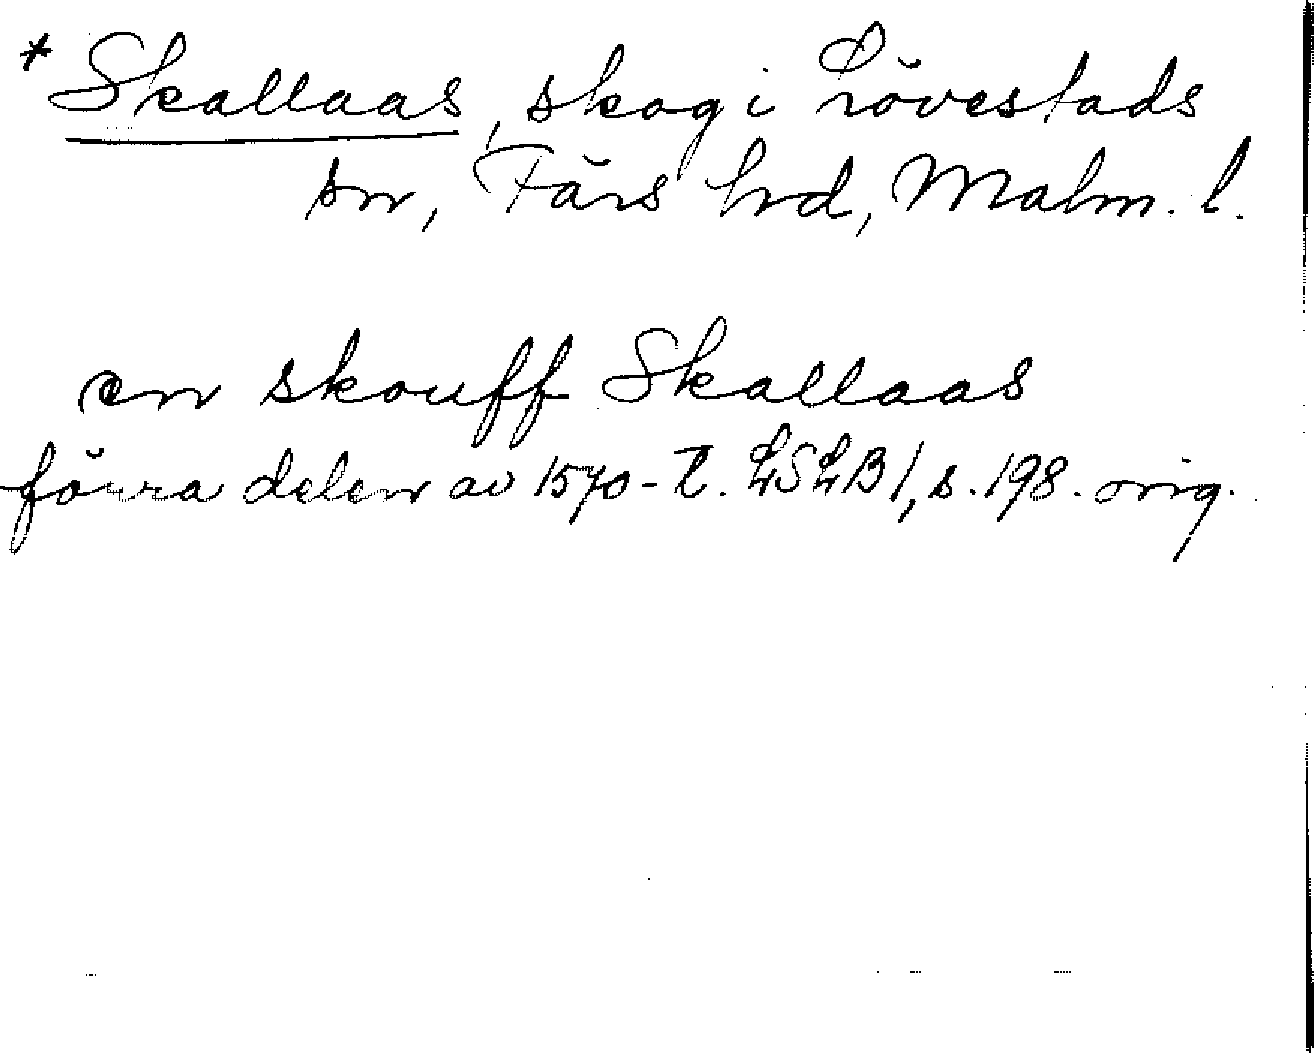 * Skallaas, skog i Lövestads
sn, Färs hrd, Malm. l.
en skouff Skallaas
förra delen av 1570-t. LSLB 1, s. 198. orig.